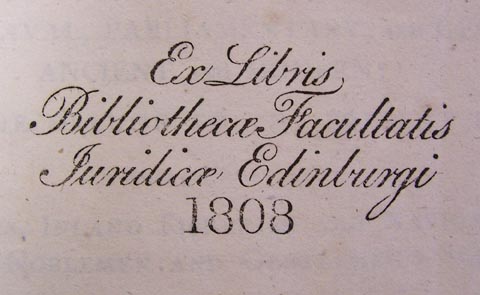 Ex Libris
Bibliothecæ Facultatis
Juridicæ Edinburgi
1808